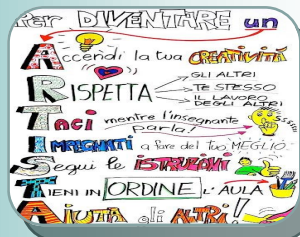 Per DIVENTARE un
Accendi la tua CREATIVITÀ
RISPETTA
GLI ALTRI
TE STESSO
IL LAVORO
DEGLI ALTRI
Taci mentre l'insegnante
parla!
IMPEGNATI a fare del tuo MEGLIO
Segui le ISTRUZIONI
TIENI IN ORDINE L'AULA
AIUTA gli ALTRI!